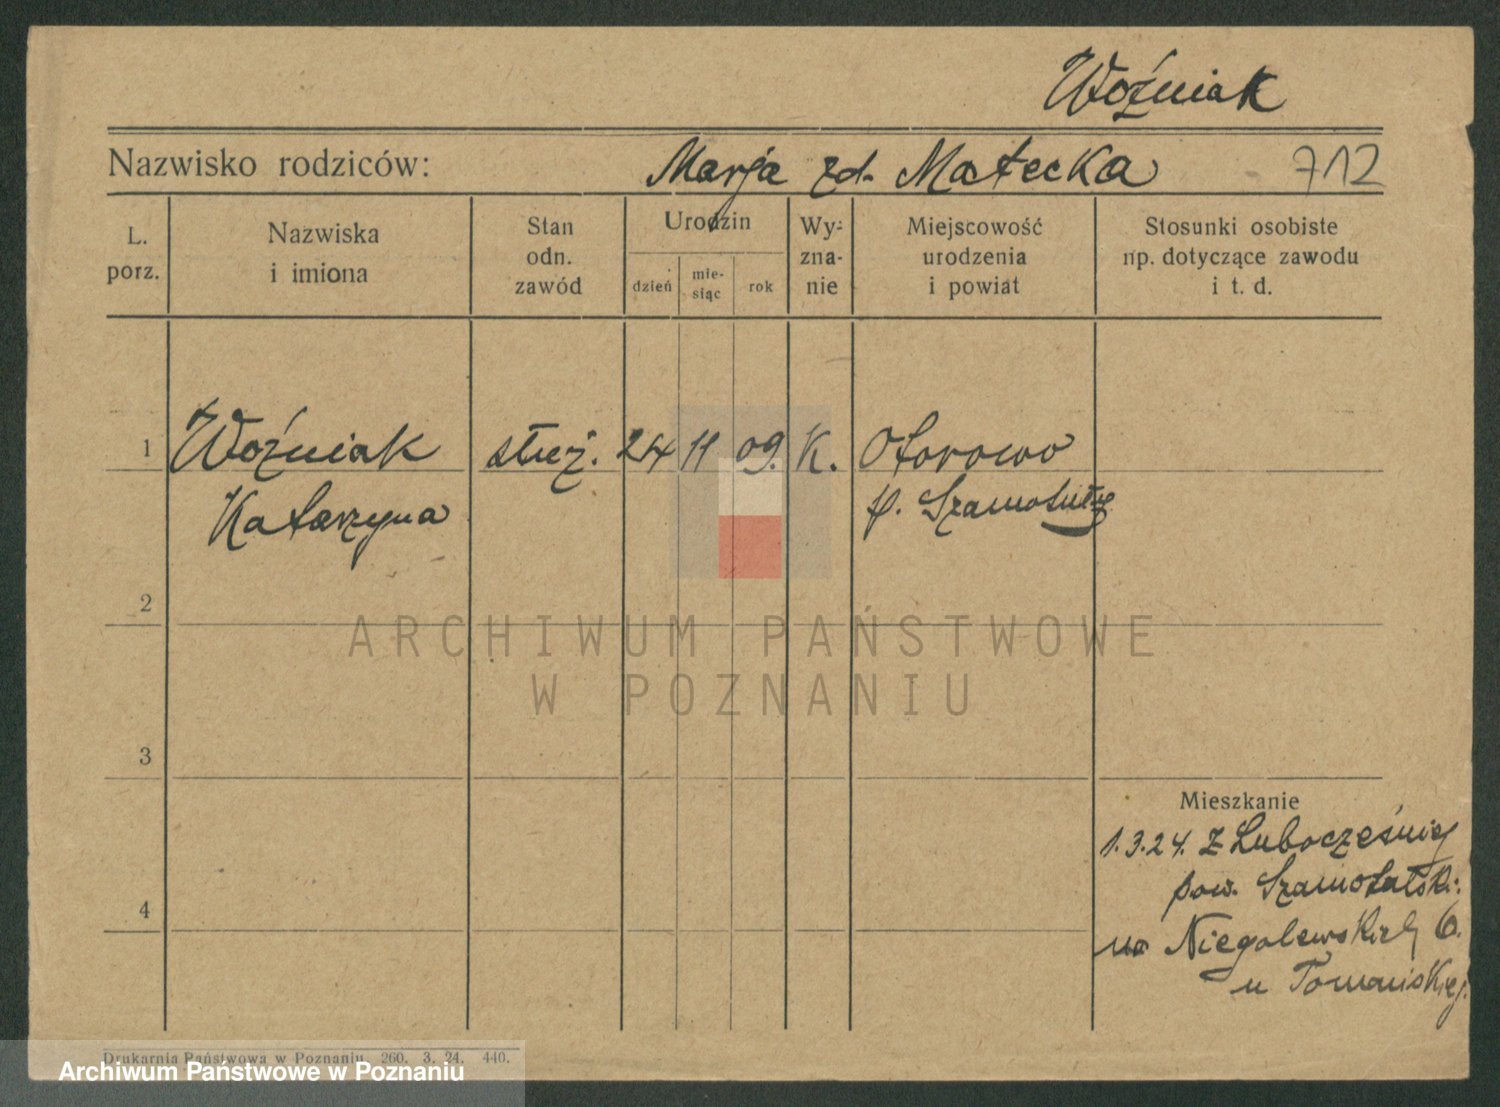 Woźniak
Nazwisko rodziców: Marja zd. Matecka 712
L. porz.
Nazwiska i imiona
Stan odn. zawód
Urodzin
dzień
mie- siąc
rok
Wy- zna- nie
Miejscowość urodzenia i powiat
Stosunki osobiste np. dotyczące zawodu i t. d.
1 Woźniak służ. 24 11 09. K. Otorowo
Katarzyna p. Szamotuły
2
3
4
ARCHIWUM PAŃSTWOWE
W POZNANIU
Mieszkanie
1.3.24. z
pow. Szamotulski
na Niegolewskich 6.
u Tomańskiej.
Drukarnia Państwowa w Poznaniu 260. 3. 24. 440.
Archiwum Państwowe w Poznaniu